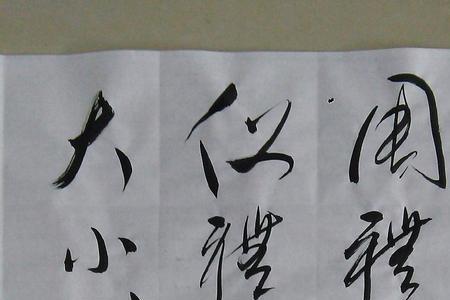 周禮
仪禮
大小